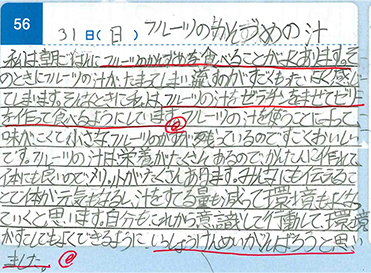 56
31日(日) フルーツのかんずめの汁
私は朝ごはんにフルーツのかんずめを食べることがよくあります。そ
のときにフルーツの汁がたまってしまい流すのがすごくもったいなく感じ
てしまいます。そんなときに私はフルーツの汁とゼラチンをまぜてゼリー
を作って食べるようにしています。フルーツの汁を使うことによって
味がこくて小さなフルーツのかけが残っているのですごくおいしい
です。フルーツの汁は栄養がたくさんあるのでかんたんに作れて
体にも良いのでメリットがたくさんあります。みんなにも伝えるこ
とで体が元気になるし、汁をする量も減って環境もよくなっ
ていくと思います。自分もこれから意識して行動して環境
がすこしでもよくできるようにいっしょうけんめいがんばろうと思い
ました。